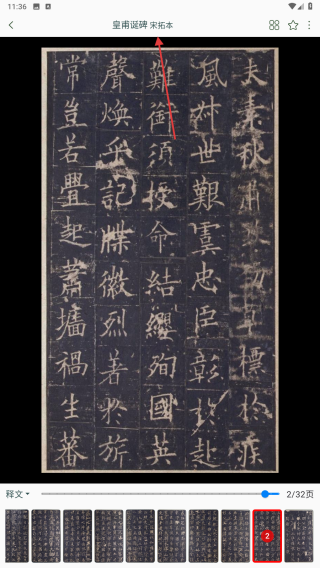 11:36
皇甫诞碑 宋拓本
夫素秋肅標於疾
風叔世艱虞忠臣彰於赴
難銜須授命結纓殉國英
聲煥乎記牒徽烈著於旂
常豈若疊起蕭墻禍生蕃
释文
2/32页
2